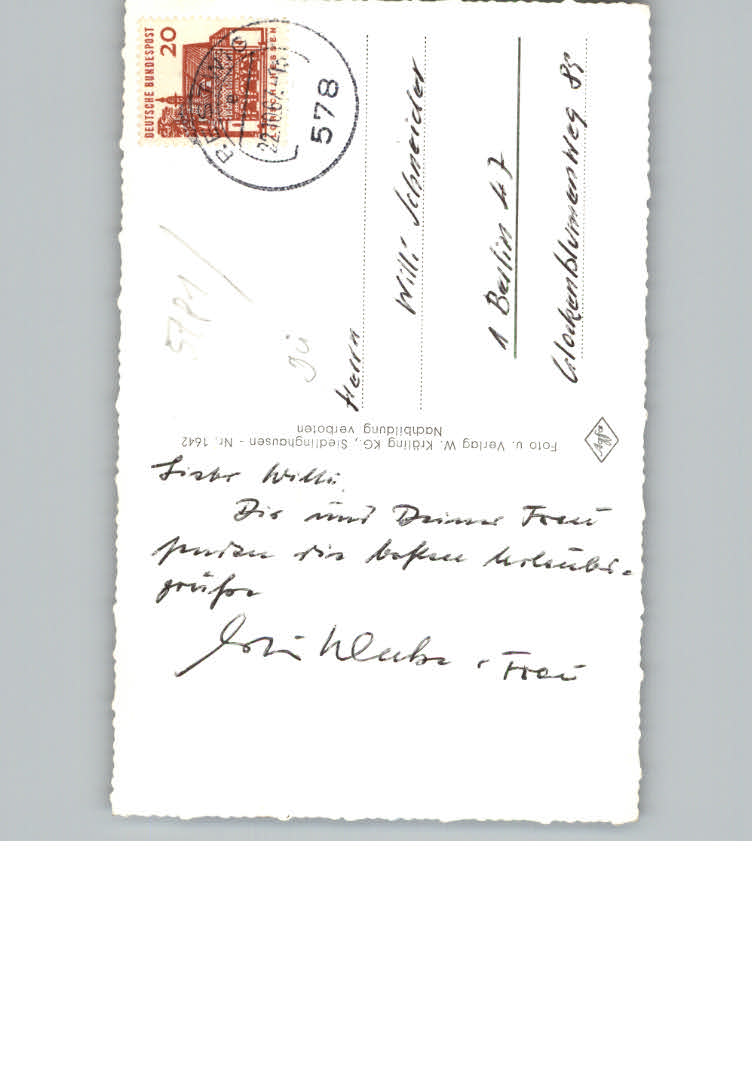 DEUTSCHE BUNDESPOST
20
578
5781
Herrn
Willi Schneider
1 Berlin 47
Glockenblumenweg 85
Foto u. Verlag W. Kräling KG., Siedlinghausen - Nr. 1642
Nachbildung verboten
Agfa
Liebe Willi,
Dir und Deiner Frau
senden die besten Urlaubs-
grüße
Frau